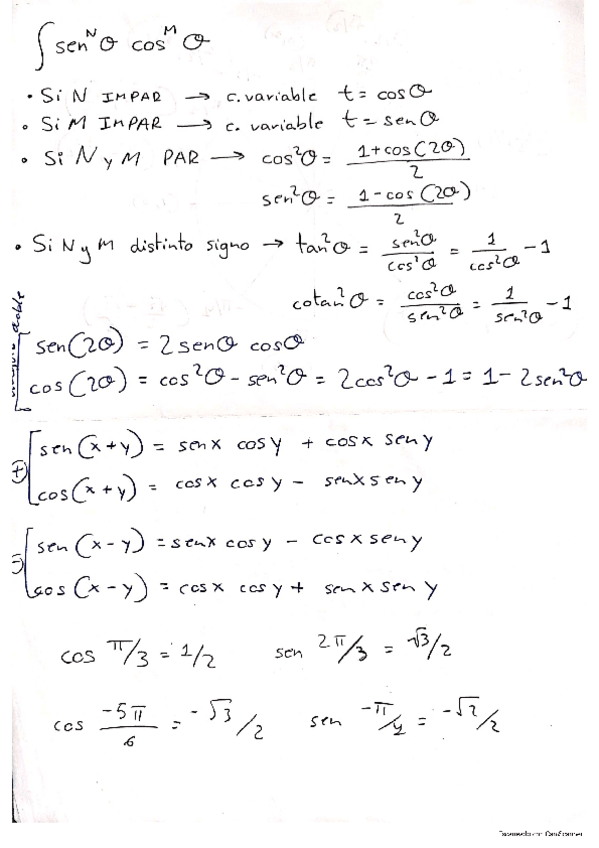 ∫ sen^N θ cos^M θ
• Si N IMPAR → c.variable t = cos θ
• Si M IMPAR → c. variable t = sen θ
• Si N y M PAR → cos²θ = (1+cos(2θ))/2
sen²θ = (1-cos(2θ))/2
• Si N y M distinto signo → tan²θ = sen²θ/cos²θ = 1/cos²θ - 1
cotan²θ = cos²θ/sen²θ = 1/sen²θ - 1
doble
sen(2θ) = 2 senθ cosθ
cos(2θ) = cos²θ - sen²θ = 2cos²θ - 1 = 1 - 2sen²θ
sen(x+y) = senx cosy + cosx seny
⊕
cos(x+y) = cosx cosy - senx seny
sen(x-y) = senx cosy - cosx seny
cos(x-y) = cosx cosy + senx seny
cos π/3 = 1/2 sen 2π/3 = √3/2
cos -5π/6 = -√3/2 sen -π/4 = -√2/2
Escaneado con CamScanner